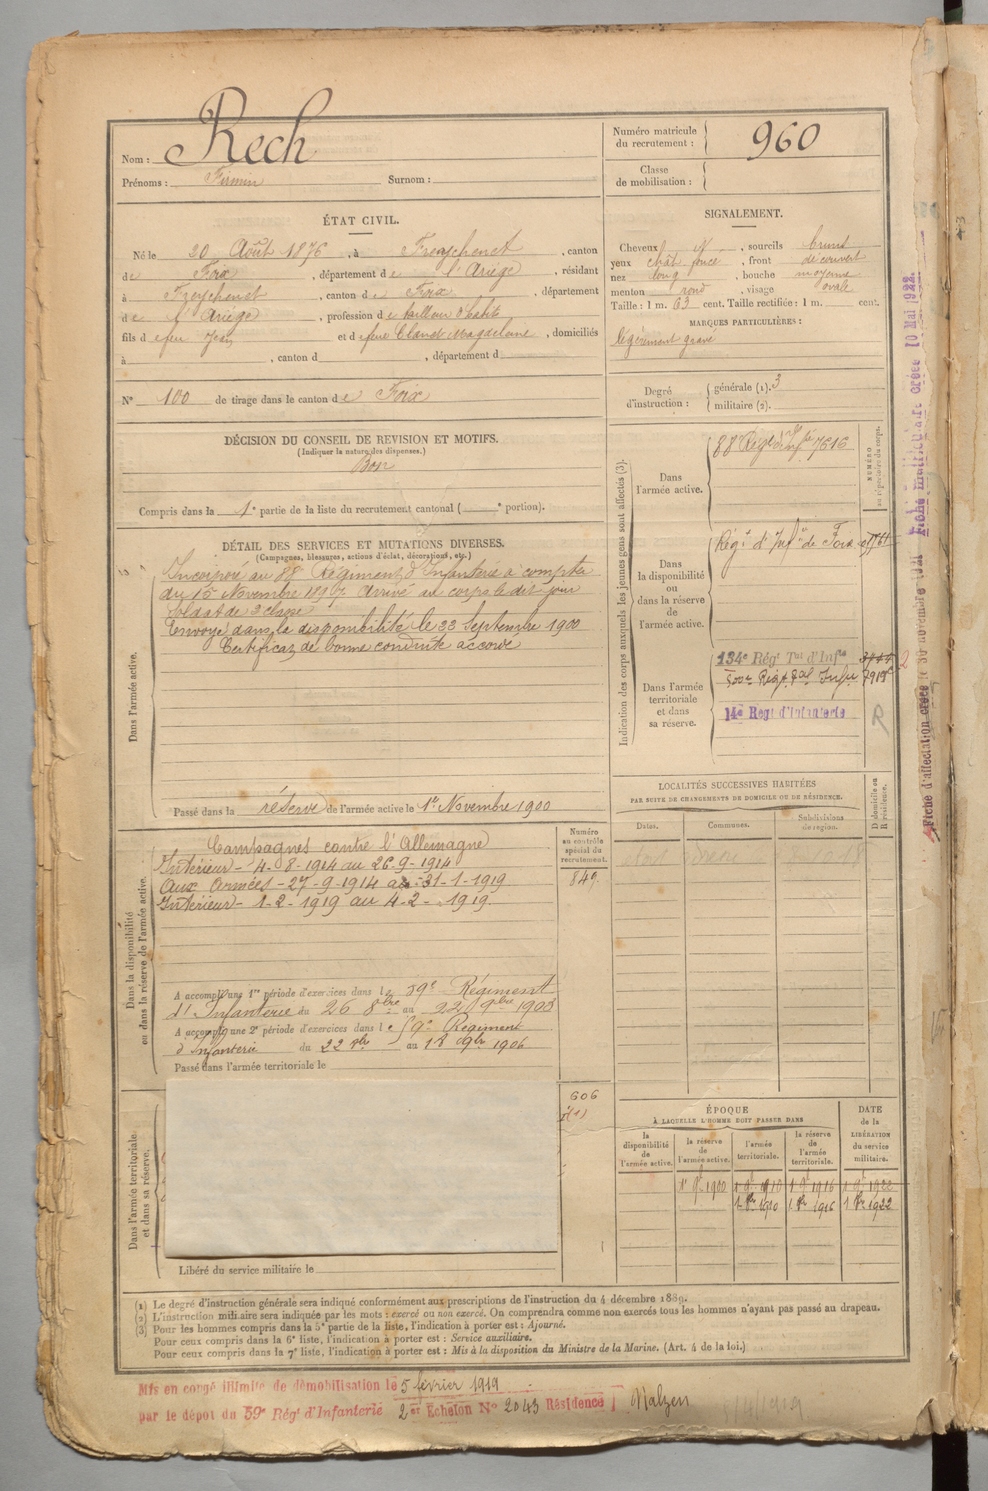 Nom : Rech
Prénoms : Firmin Surnom :
Numéro matricule du recrutement : 960
Classe de mobilisation :
ÉTAT CIVIL.
Né le 20 Août 1876, à Freychenet, canton
de Foix, département de l'Ariège, résidant
à Freychenet, canton de Foix, département
de l'Ariège, profession de tailleur d'habits
fils de feu Jean et de feue Claret Magdelaine, domiciliés
à , canton d , département d
SIGNALEMENT.
Cheveux , sourcils bruns
yeux chât. foncé, front découvert
nez long, bouche moyenne
menton rond, visage ovale
Taille : 1 m. 63 cent. Taille rectifiée : 1 m. cent.
MARQUES PARTICULIÈRES :
légèrement gravé
N° 100 de tirage dans le canton de Foix
Degré d'instruction : générale (1). 3
militaire (2).
DÉCISION DU CONSEIL DE REVISION ET MOTIFS.
(Indiquer la nature des dispenses.)
Bon
Compris dans la 1e partie de la liste du recrutement cantonal ( e portion).
DÉTAIL DES SERVICES ET MUTATIONS DIVERSES.
(Campagnes, blessures, actions d'éclat, décorations, etc.)
Dans l'armée active.
Incorporé au 88e Régiment d'Infanterie à compter
du 15 Novembre 1897. Arrivé au corps le dit jour
Soldat de 2e classe
Envoyé dans la disponibilité le 22 Septembre 1900
Certificat de bonne conduite accordé
Passé dans la réserve de l'armée active le 1er Novembre 1900
Indication des corps auxquels les jeunes gens sont affectés (3).
NUMÉRO au répertoire du corps.
Dans l'armée active.
88 Régt d'Infie 7616
Dans la disponibilité ou dans la réserve de l'armée active.
Régt d'Infie de Foix
Dans l'armée territoriale et dans sa réserve.
134e Régt Tal d'Infie
14e Régt d'Infanterie
R
2
LOCALITÉS SUCCESSIVES HABITÉES
PAR SUITE DE CHANGEMENTS DE DOMICILE OU DE RÉSIDENCE.
Dates. Communes. Subdivisions de région. D domicile ou R résidence.
Dans la disponibilité ou dans la réserve de l'armée active.
Numéro au contrôle spécial du recrutement.
849
Campagnes contre l'Allemagne
Intérieur - 4-8-1914 au 26-9-1914
Aux Armées - 27-9-1914 au 31-1-1919
Intérieur - 1-2-1919 au 4-2-1919
A accompli une 1re période d'exercices dans le 59e Régiment
d'Infanterie du 26 8bre au 22 9bre 1903
A accompli une 2e période d'exercices dans le 59e Régiment
d'Infanterie du 22 8bre au 18 9bre 1906
Passé dans l'armée territoriale le
606
Dans l'armée territoriale et dans sa réserve.
Libéré du service militaire le
ÉPOQUE
À LAQUELLE L'HOMME DOIT PASSER DANS
la disponibilité de l'armée active.
la réserve de l'armée active.
l'armée territoriale.
la réserve de l'armée territoriale.
DATE de la LIBÉRATION du service militaire.
1er 9bre 1900 1er 9bre 1910 1er 9bre 1916 1er 9bre 1922
1er 8bre 1910 1er 8bre 1916 1er 8bre 1922
(1) Le degré d'instruction générale sera indiqué conformément aux prescriptions de l'instruction du 4 décembre 1889.
(2) L'instruction militaire sera indiquée par les mots : exercé ou non exercé. On comprendra comme non exercés tous les hommes n'ayant pas passé au drapeau.
(3) Pour les hommes compris dans la 5e partie de la liste, l'indication à porter est : Ajourné.
Pour ceux compris dans la 6e liste, l'indication à porter est : Service auxiliaire.
Pour ceux compris dans la 7e liste, l'indication à porter est : Mis à la disposition du Ministre de la Marine. (Art. 4 de la loi.)
Mis en congé illimité de démobilisation le 5 février 1919
par le dépôt du 59e Régt d'Infanterie 2e Echelon N° 2043 Résidence Nalzen
Fiche d'affectation créée le 30 novembre 1921 Fiche matriculaire créée 10 Mai 1922